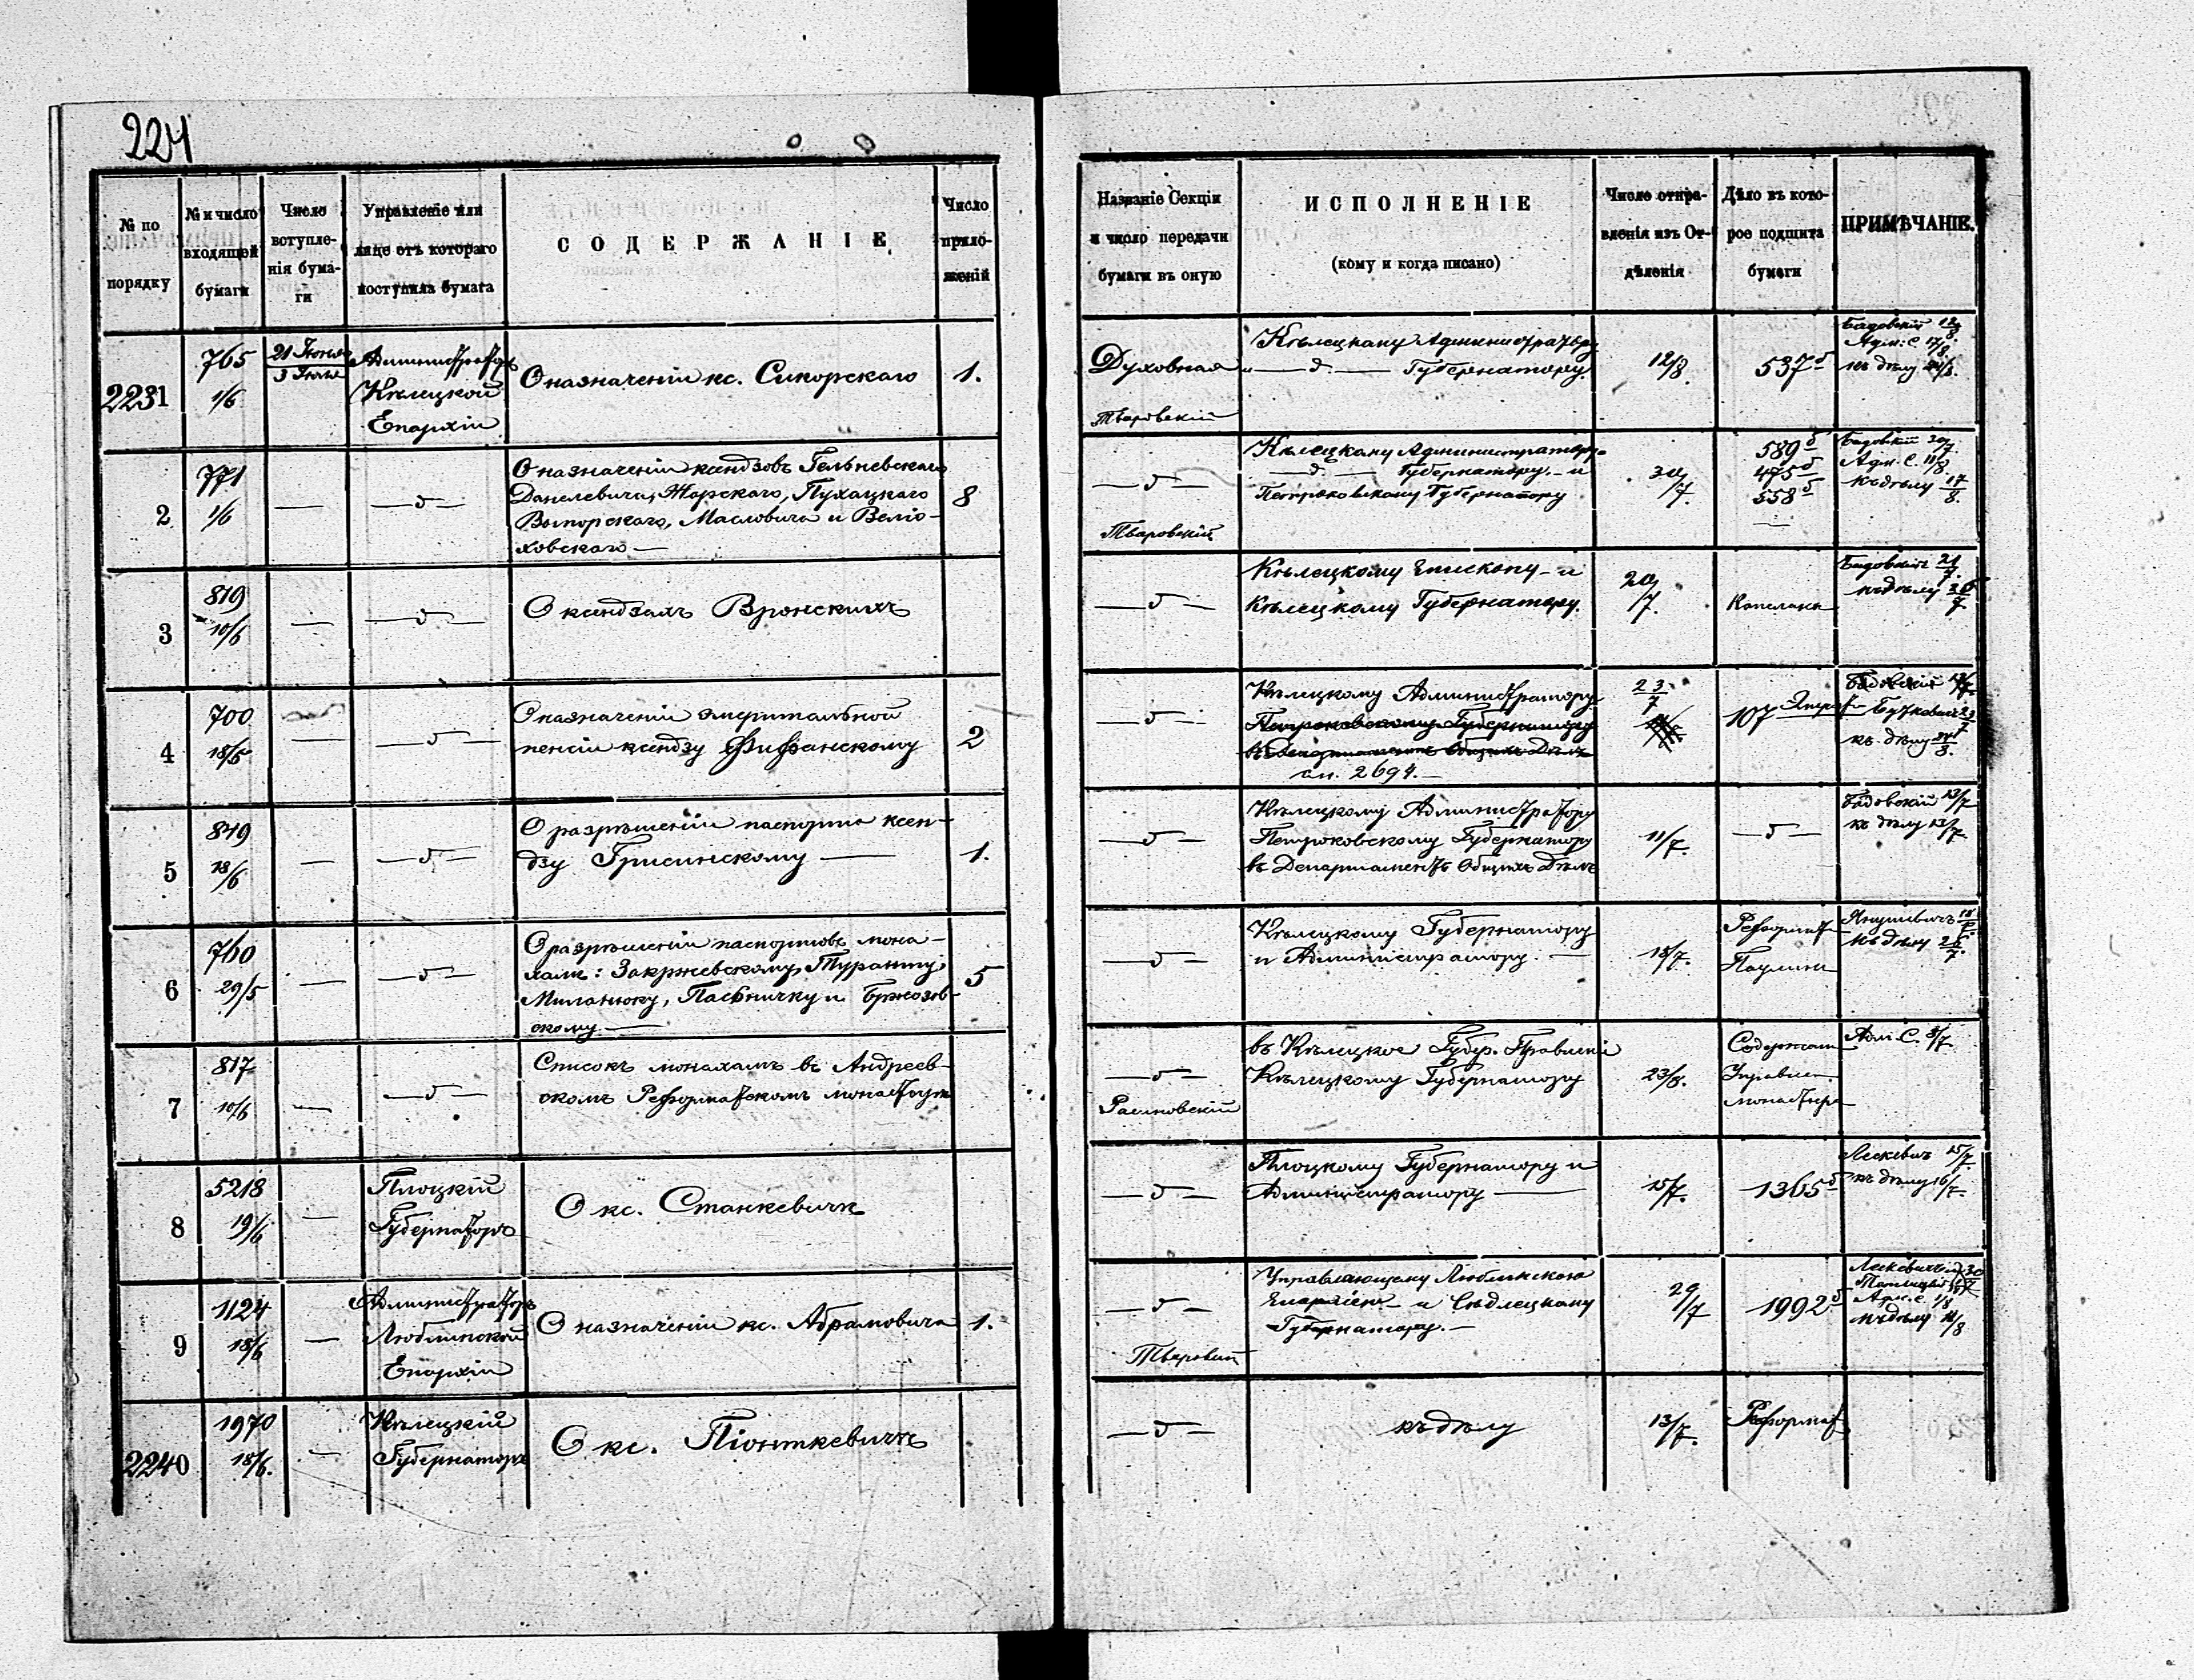 224
№ по порядку
№ и число входящей бумаги
Число вступле-нія бума-ги
Управленіе или лице отъ котораго поступила бумага
СОДЕРЖАНІЕ
Число прило-женій
Названіе Секціи и число передачи бумаги въ оную
ИСПОЛНЕНІЕ
(кому и когда писано)
Число отпра-вленія изъ От-дѣленія
Дѣло въ кото-рое подшита бумаги
ПРИМѢЧАНІЕ.
2231
765
1/6
21 Іюня
3 Іюля
Администраторъ
Кѣлецкой
Епархіи
О назначеніи кс. Сикорскаго
1.
Духовная
Тваровскій
Кѣлецкому Администратору
и — д. — Губернатору.
12/8
537 б
Бадовскій 12/8
Адм. С 17/8
къ дѣлу
2
771
1/6
—
— д —
О назначеніи ксендзовъ Гельневскаго
Данелевича, Жарскаго, Пухацкаго
Выпорскаго, Масловича и Веліо-
ховскаго —
8
— д —
Тваровскій
Кѣлецкому Администратору
— д. — Губернатору — и
Петроковскому Губернатору
30/7.
589 б
475 б
558 б
Бадовскій 30/7
Адм. С. 11/8
къ дѣлу 17/8.
3
819
10/6
—
— д —
О ксендзахъ Вронскихъ
— д —
Кѣлецкому Епископу — и
Кѣлецкому Губернатору.
20/7.
Капелана
Бадовскій 21/7.
къ дѣлу
4
700
18/5
—
— д —
О назначеніи эмеритальной
пенсіи ксендзу Фифанскому
2
— д —
Кѣлецкому Администратору
Петроковскому Губернатору
въ Департаментъ Общихъ Дѣлъ
сл. 2694. —
23/7
107 Эмерит
Бадовскій
Буткевичъ 23/7
къ дѣлу
5
849
18/6
—
— д —
О разрѣшеніи паспорта ксен-
дзу Грисинскому —
1.
— д —
Кѣлецкому Администратору
Петроковскому Губернатору
въ Департаментъ Общихъ Дѣлъ
11/7.
— д —
Бадовскій 13/7
къ дѣлу 13/7.
6
760
29/5
—
— д —
О разрѣшеніи паспортовъ мона-
хамъ: Закржевскому, Туранту
Миланюку, Пасѣничку и Бржозов-
скому —
5
— д —
Кѣлецкому Губернатору
и Администратору. —
18/7.
Реформат
Паулины
Янушевичъ
къ дѣлу 26/7.
7
817
10/6
—
— д —
Списокъ монахамъ въ Андреев-
скомъ Реформатскомъ монастырѣ
— д —
Расиновскій
въ Кѣлецкое Губер. Правленіе
Кѣлецкому Губернатору
23/8.
Содержан
Управлен.
монастыря
Адм. С. 3/7
8
5218
19/6
—
Плоцкій
Губернаторъ
О кс. Станкевичѣ
— д —
Плоцкому Губернатору и
Администратору —
15/7.
1365 б
Лескевичъ 15/7
къ дѣлу 16/7.
9
1124
18/6
—
Администраторъ
Люблинской
Епархіи
О назначеніи кс. Абрамовича
1.
— д —
Тваровскій
Управляющему Люблинскою
Епархіею — и Сѣдлецкому
Губернатору. —
29/7
1992 б
Лескевичъ
Адм. С. 1/8
къ дѣлу
2240
1970
18/6.
—
Кѣлецкій
Губернаторъ
О кс. Піонткевичѣ
— д —
къ дѣлу
13/7.
Реформат